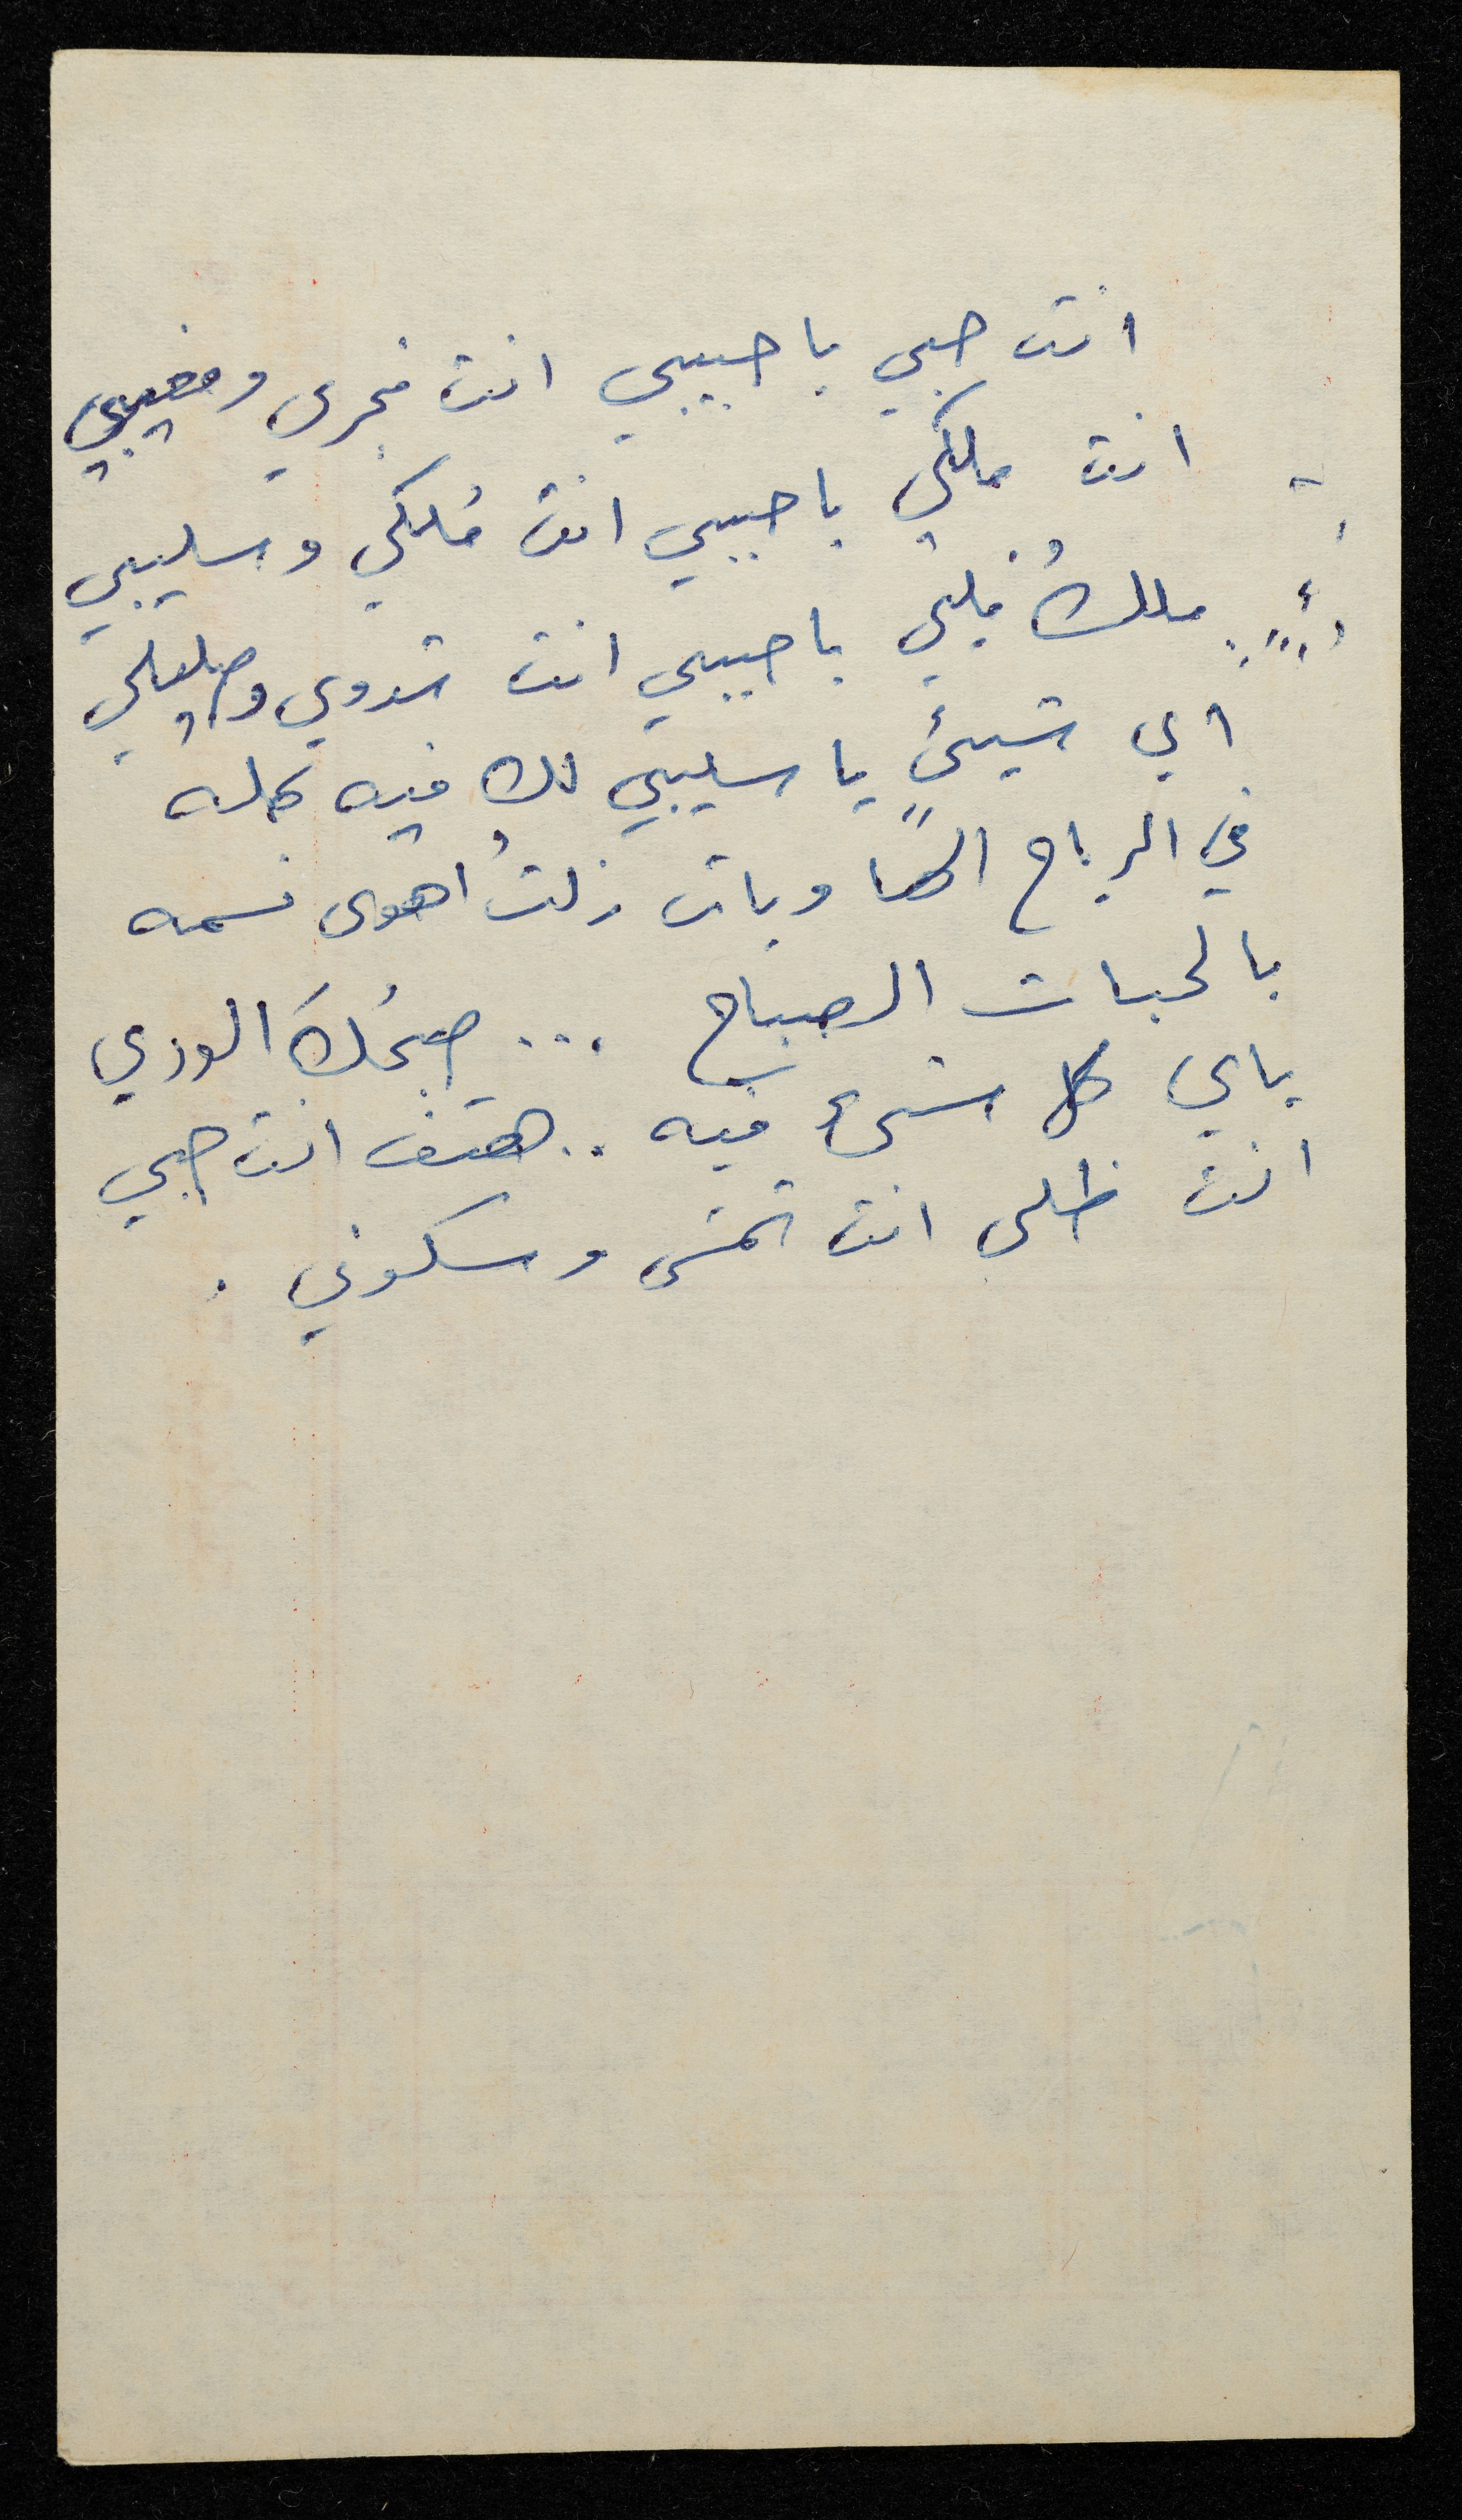 انت حبي يا حبيبي انت فجري ومغيبي
انت ملكي يا حبيبي انت مُلكي وسليبي
ملكُ قلبي يا حبيبي انت شدوي و
اي شيئٍ يا سليبي لك فيه كله
في الرياح الهاويات زلتُ اهوى نسمه
بالحبات الصباح ... صبحُكَ الوردي
ياي كل شيء فيه .. هتف انت حبي
انت ظلي انت وسكوني .